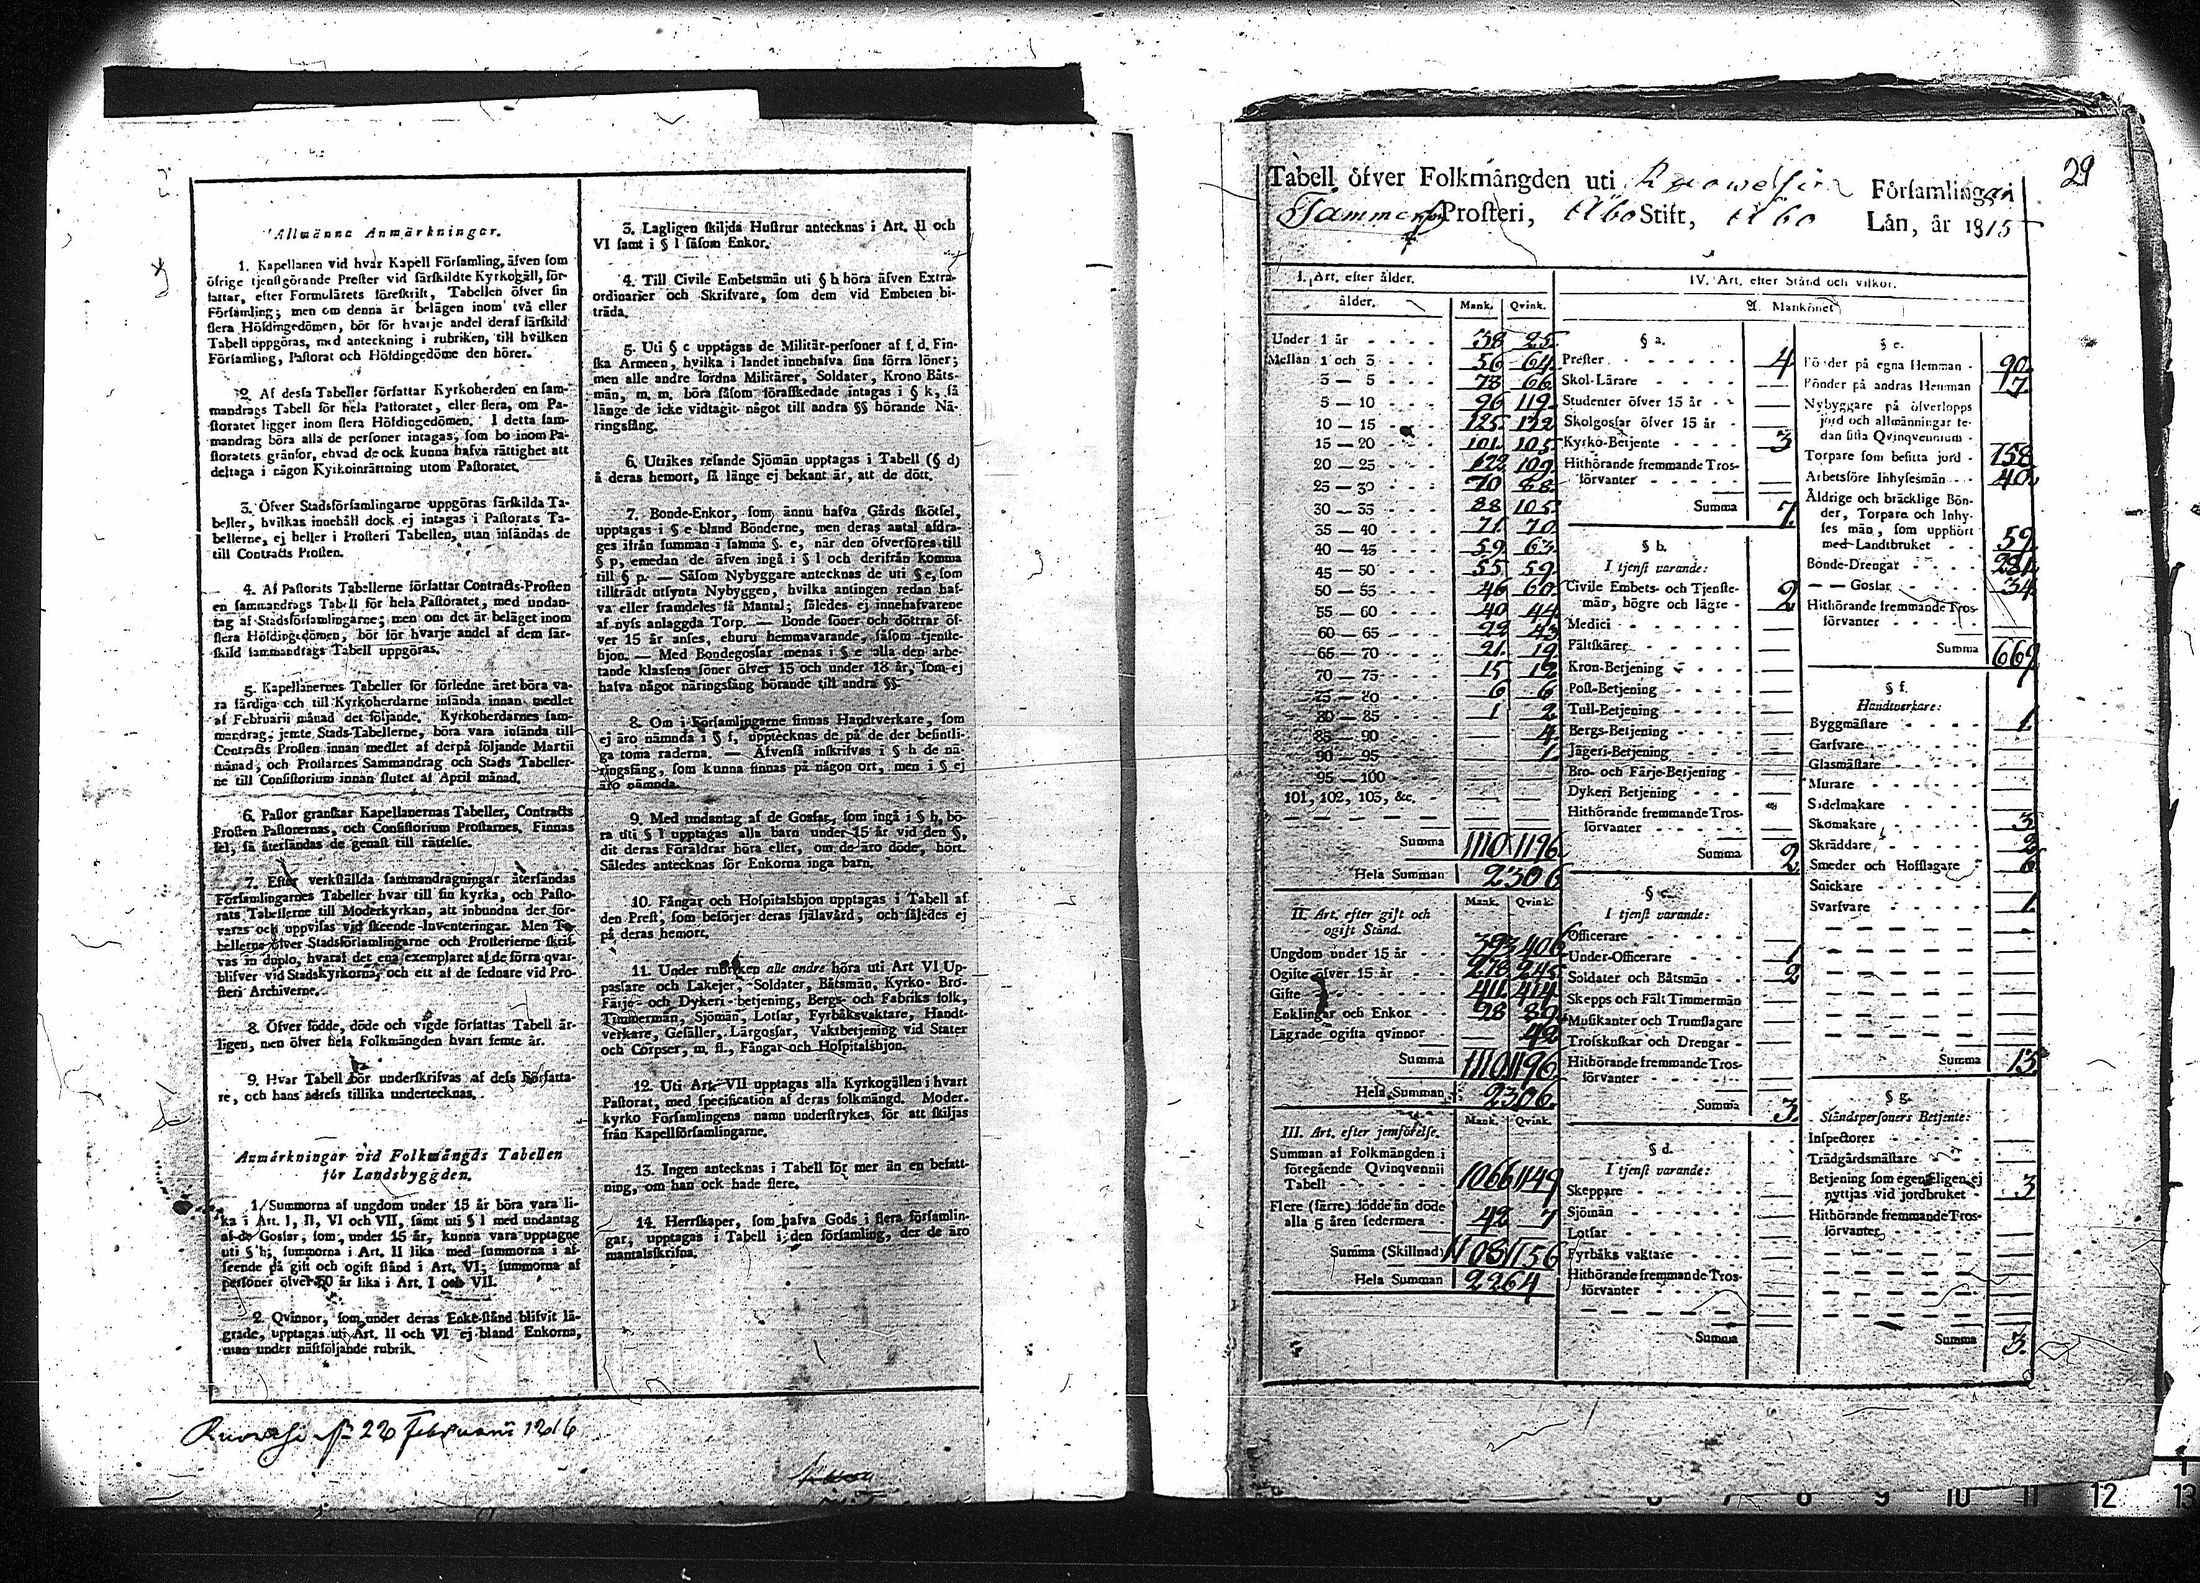 Allmänna Anmärkningar.
1. Kapellanen vid hvar Kapell Församling, äfven som
öfrige tjenstgörande Prester vid särskildte Kyrkogäll, för-
fattar, efter Formulärets föreskrift, Tabellen öfver sin
Församling; men om denna är belägen inom två eller
flera Höfdingedömen, bör för hvarje andel deraf särskild
Tabell uppgöras, med anteckning i rubriken, till hvilken
Församling, Pastorat och Höfdingedöme den hörer.
2. Af dessa Tabeller författar Kyrkoherden en sam-
mandrags Tabell för hela Pastoratet, eller flera, om Pa-
storatet ligger inom flera Höfdingedömen. I detta sam-
mandrag böra alla de personer intagas, som bo inom Pa-
storatets gränsor, ehvad de ock kunna hafva rättighet att
deltaga i någon Kyrkoinrättning utom Pastoratet.
3. Öfver Stadsförsamlingarne uppgöras särskilda Ta-
beller, hvilkas innehåll dock ej intagas i Pastorats Ta-
bellerne, ej heller i Prosteri Tabellen, utan insändas de
till Contracts Prosten.
4. Af Pastorats Tabellerne författar Contracts-Prosten
en sammandrags Tabell för hela Pastoratet, med undan-
tag af Stadsförsamlingarne; men om det är beläget inom
flera Höfdingedömen, bör för hvarje andel af dem sär-
skild sammandrags Tabell uppgöras.
5. Kapellanernes Tabeller för förledne året böra va-
ra färdiga och till Kyrkoherdarne insända innan medlet
af Februarii månad det följande. Kyrkoherdarnes sam-
mandrag, jemte Stads-Tabellerne, böra vara insända till
Contracts Prosten innan medlet af derpå följande Martii
månad, och Prostarnes Sammandrag och Stads Tabeller-
ne till Consistorium innan slutet af April månad.
6. Pastor granskar Kapellanernas Tabeller, Contracts
Prosten Pastorernas, och Consistorium Prostarnes. Finnas
fel, så återsändas de genast till rättelse.
7. Efter verkställda sammandragningar återsändas
Församlingarnes Tabeller hvar till sin kyrka, och Pasto-
rats Tabellerne till Moderkyrkan, att inbundna der för-
varas och uppvisas vid skeende Inventeringar. Men Ta-
bellerne öfver Stadsförsamlingarne och Prosterierne skrif-
vas in duplo, hvaraf det ena exemplaret af de förra qvar-
blifver vid Stadskyrkorna, och ett af de sednare vid Pro-
steri Archiverne.
8. Öfver födde, döde och vigde författas Tabell år-
ligen, men öfver hela Folkmängden hvart femte år.
9. Hvar Tabell bör underskrifvas af dess Författa-
re, och hans adress tillika undertecknas.
Anmärkningar vid Folkmängds Tabellen
för Landsbyggden.
1. Summorna af ungdom under 15 år böra vara li-
ka i Art. I, II, VI och VII, samt uti § l med undantag
af de Gossar, som, under 15 år, kunna vara upptagne
uti § h; summorna i Art. II lika med summorna i af-
seende på gift och ogift stånd i Art. VI; summorna af
personer öfver 50 år lika i Art. I och VII.
2. Qvinnor, som under deras Enke-stånd blifvit lä-
grade, upptagas uti Art. II och VI ej bland Enkorna,
utan under nästföljande rubrik.
3. Lagligen skiljda Hustrur antecknas i Art. II och
VI samt i § l såsom Enkor.
4. Till Civile Embetsmän uti § b höra äfven Extra-
ordinarier och Skrifvare, som dem vid Embeten bi-
träda.
5. Uti § c upptagas de Militär-personer af f. d. Fin-
ska Armeen, hvilka i landet innehafva sina förra löner;
men alle andre fordna Militärer, Soldater, Krono Båts-
män, m. m. böra såsom förafskedade intagas i § k, så
länge de icke vidtagit något till andra §§ hörande Nä-
ringsfång.
6. Utrikes resande Sjömän upptagas i Tabell (§ d)
å deras hemort, så länge ej bekant är, att de dött.
7. Bonde-Enkor, som ännu hafva Gårds skötsel,
upptagas i § e bland Bönderne, men deras antal afdra-
ges ifrån summan i samma §. e, när den öfverföres till
§ p, emedan de äfven ingå i § l och derifrån komma
till § p. — Såsom Nybyggare antecknas de uti § e, som
tillträdt utsynta Nybyggen, hvilka antingen redan haf-
va eller framdeles få Mantal; således ej innehafvarene
af nyss anlaggda Torp. — Bonde söner och döttrar öf-
ver 15 år anses, ehuru hemmavarande, såsom tjenste-
hjon. — Med Bondegossar menas i § e alla den arbe-
tande klassens söner öfver 15 och under 18 år, som ej
hafva något näringsfång hörande till andra §§
8. Om i Församlingarne finnas Handtverkare, som
ej äro nämnda i § f, upptecknas de på de der befintli-
ga toma raderna. — Äfvenså inskrifvas i § h de nä-
ringsfång, som kunna finnas på någon ort, men i § ej
äro nämnda.
9. Med undantag af de Gossar, som ingå i § h, bö-
ra uti § l upptagas alla barn under 15 år vid den §,
dit deras Föräldrar höra eller, om de äro döde, hört.
Således antecknas för Enkorna inga barn.
10. Fångar och Hospitalshjon upptagas i Tabell af
den Prest, som besörjer deras själavård, och således ej
på deras hemort.
11. Under rubriken alle andre höra uti Art VI Up-
passare och Lakejer, Soldater, Båtsmän, Kyrko- Bro-
Färje- och Dykeri-betjening, Bergs- och Fabriks folk,
Timmermän, Sjömän, Lotsar, Fyrbåksvaktare, Handt-
verkare, Gesäller, Lärgossar, Vaktbetjening vid Stater
och Corpser, m. fl., Fångar och Hospitalshjon.
12. Uti Art. VII upptagas alla Kyrkogällen i hvart
Pastorat, med specification af deras folkmängd. Moder-
kyrko Församlingens namn understrykes för att skiljas
från Kapellförsamlingarne.
13. Ingen antecknas i Tabell för mer än en befatt-
ning, om han ock hade flere.
14. Herrskaper, som hafva Gods i flera församlin-
gar, upptagas i Tabell i den församling, der de äro
mantalsskrifna.
22 Februarii 1816
29
Tabell öfver Folkmängden uti Ruowesi Församlingar i
Tammerfors Prosteri, Åbo Stift, Åbo Län, år 1815
I. Art. efter ålder.
ålder. Mank. Qvink.
Under 1 år 38 25
Mellan 1 och 3 56 64
3 — 5 78 66
5 — 10 96 119
10 — 15 125 132
15 — 20 101 105
20 — 25 122 109
25 — 30 70 88
30 — 35 88 105
35 — 40 71 70
40 — 45 59 63
45 — 50 55 59
50 — 55 46 60
55 — 60 40 44
60 — 65 22 43
65 — 70 21 19
70 — 75 15 12
75 — 80 6 6
80 — 85 1 2
85 — 90 4
90 — 95 1
95 — 100
101, 102, 103, &c.
Summa 1110 1196
Hela Summan 2306
II. Art. efter gift och
ogift Stånd. Mank. Qvink.
Ungdom under 15 år 393 406
Ogifte öfver 15 år 278 245
Gifte 411 414
Enklingar och Enkor 28 89
Lägrade ogifta qvinnor 42
Summa 1110 1196
Hela Summan 2306
III. Art. efter jemförelse. Mank. Qvink.
Summan af Folkmängden i
föregående Qvinqvennii
Tabell 1066 1149
Flere (färre) födde än döde
alla 5 åren sedermera 42 7
Summa (Skillnad) 1108 1156
Hela Summan 2264
IV. Art. efter Stånd och vilkor.
A. Mankönet
§ a.
Prester 4
Skol-Lärare
Studenter öfver 15 år
Skolgossar öfver 15 år
Kyrko-Betjente 3
Hithörande fremmande Tros-
förvanter
Summa 7
§ b.
I tjenst varande:
Civile Embets- och Tjenste-
män, högre och lägre 2
Medici
Fältskärer
Kron-Betjening
Post-Betjening
Tull-Betjening
Bergs-Betjening
Jägeri-Betjening
Bro- och Färje-Betjening
Dykeri Betjening
Hithörande fremmande Tros-
förvanter
Summa 2
§ c.
I tjenst varande:
Officerare
Under-Officerare 1
Soldater och Båtsmän 2
Skepps och Fält Timmermän
Musikanter och Trumslagare
Trosskuskar och Drengar
Hithörande fremmande Tros-
förvanter
Summa 3
§ d.
I tjenst varande:
Skeppare
Sjömän
Lotsar
Fyrbåks vaktare
Hithörande fremmande Tros-
förvanter
Summa
§ e.
Bönder på egna Hemman 90
Bönder på andras Hemman 7
Nybyggare på öfverlopps
jord och allmänningar se-
dan sista Qvinqvennium
Torpare som besitta jord 158
Arbetsföre Inhysesmän 40
Åldrige och bräcklige Bön-
der, Torpare och Inhy-
ses män, som upphört
med Landtbruket 59
Bonde-Drengar 281
— — Gossar 34
Hithörande fremmande Tros-
förvanter
Summa 669
§ f.
Handtverkare:
Byggmästare 1
Garfvare
Glasmästare
Murare
Sadelmakare
Skomakare 3
Skräddare 2
Smeder och Hofslagare 6
Snickare
Svarfvare 1
Summa 13
§ g.
Ståndspersoners Betjente:
Inspectorer
Trädgårdsmästare
Betjening som egenteligen ej
nyttjas vid jordbruket 3
Hithörande fremmande Tros-
förvanter
Summa 3
6 7 8 9 10 11 12 13